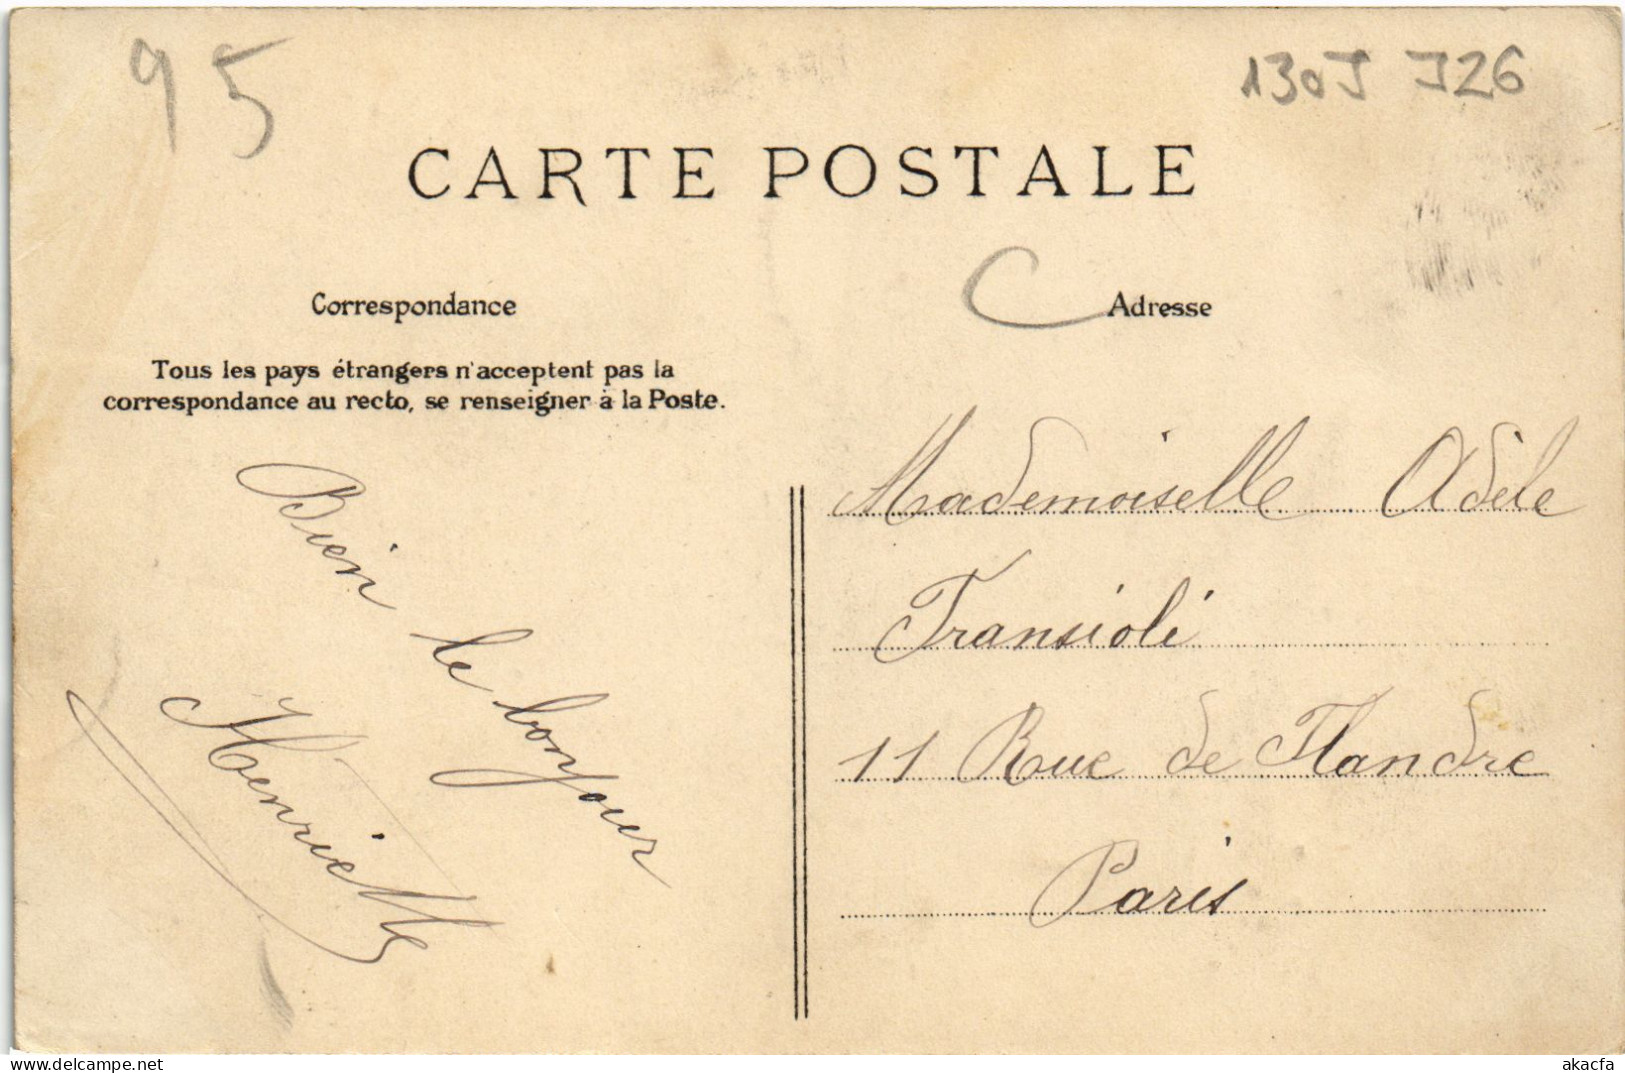 95
130J J26
CARTE POSTALE
C
Correspondance
Adresse
Tous les pays étrangers n'acceptent pas la
correspondance au recto, se renseigner à la Poste.
Bien le bonjour
Henriette
Mademoiselle Adèle
Transioli
11 Rue de Flandre
Paris
akacfa